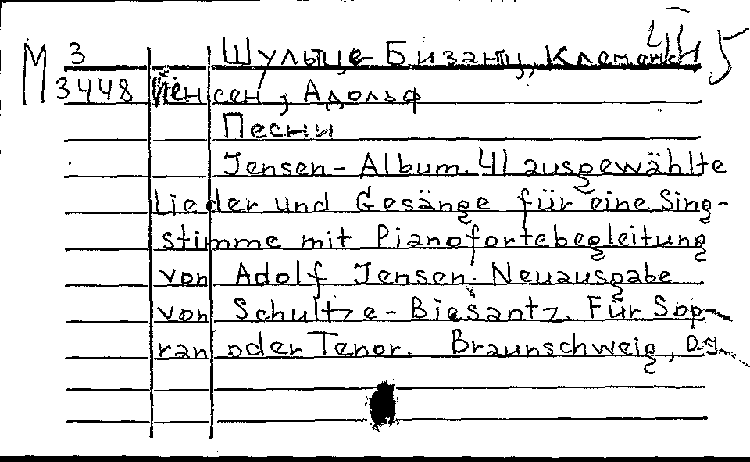 М 3 Шультце-Бизанц, Клеменс 44 5
3448 Йенсен, Адольф
Песни
Jensen-Album. 41 ausgewählte
Lieder und Gesänge für eine Sing-
stimme mit Pianofortebegleitung
von Adolf Jensen. Neuausgabe
von Schultze-Biesantz. Für Sop-
ran oder Tenor. Braunschweig,